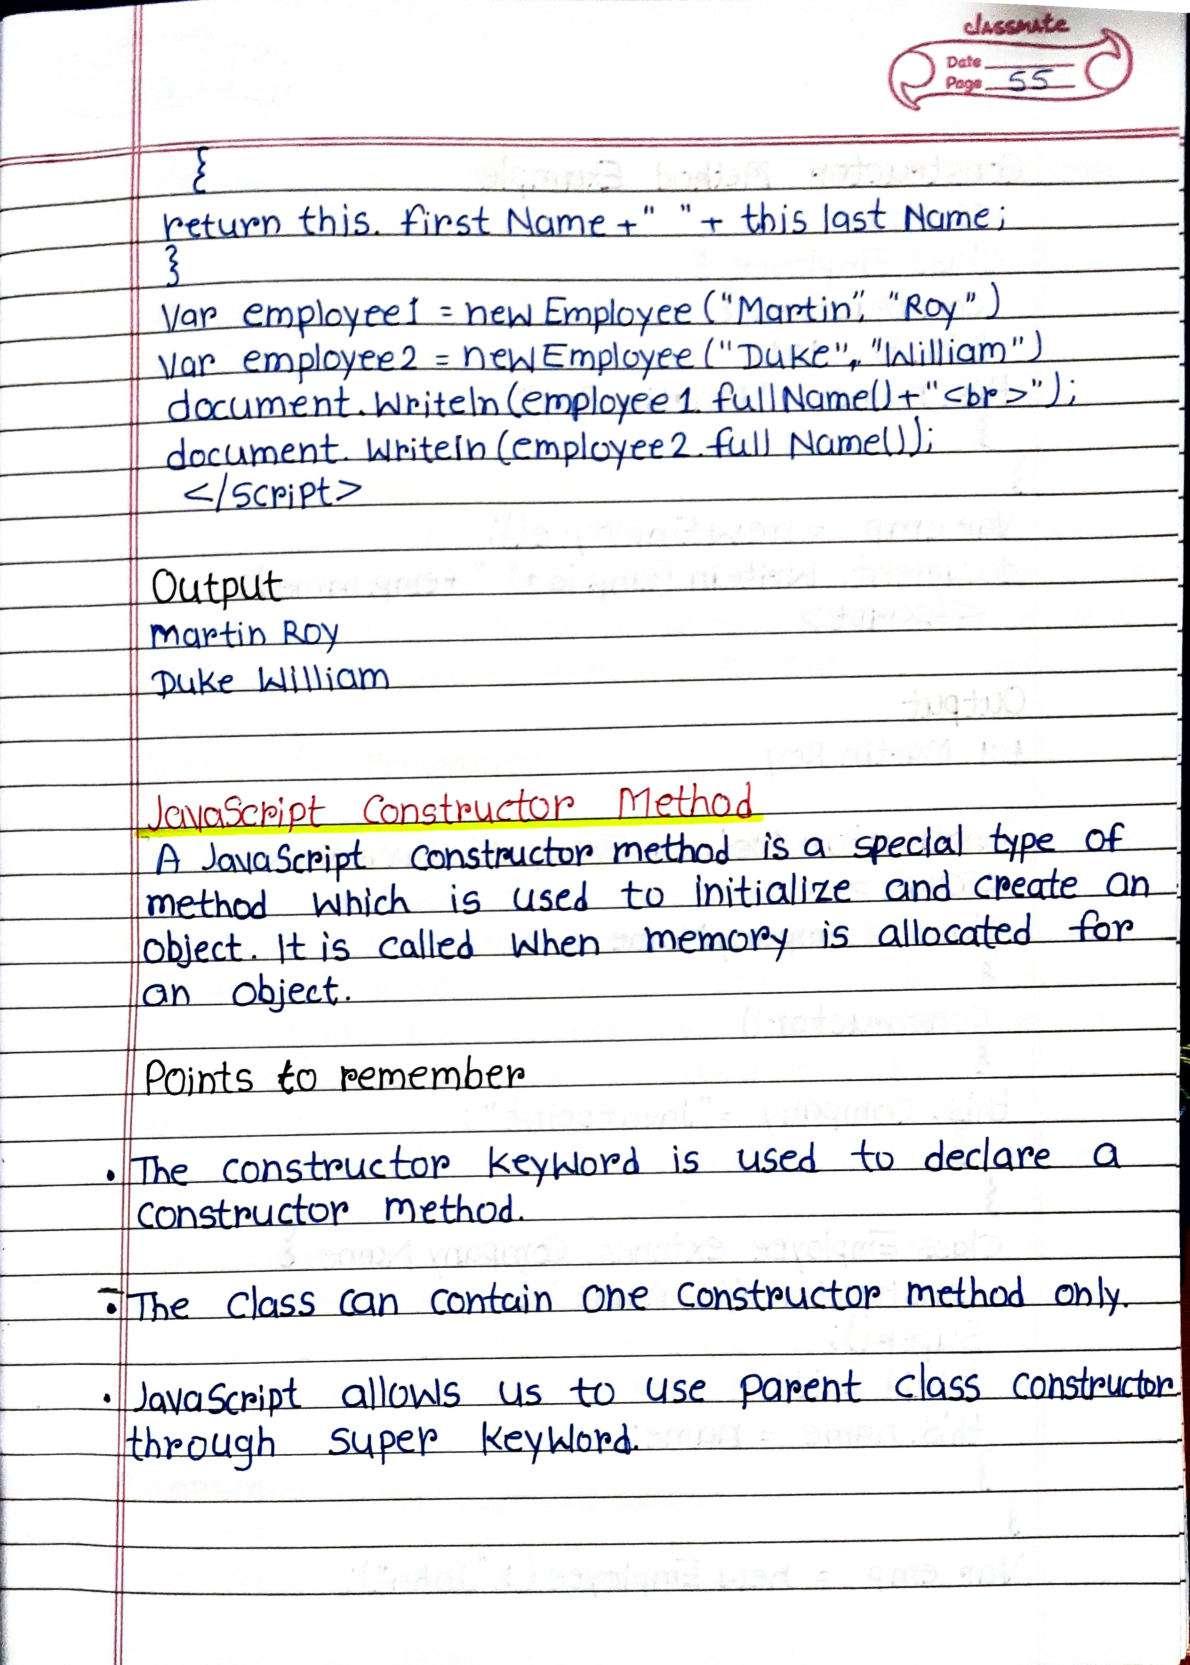 classmate
Date
Page 55
{
return this. first Name +" "+ this last Name;
}
Var employee1 = new Employee ("Martin", "Roy")
Var employee2 = new Employee ("Duke", "William")
document.Writeln(employee1. fullName()+"<br>");
document. Writeln (employee2. full Name());
</script>
Output
Martin Roy
Duke William
JavaScript Constructor Method
A JavaScript constructor method is a special type of
method which is used to initialize and create an
object. It is called when memory is allocated for
an object.
Points to remember
• The constructor keyword is used to declare a
constructor method.
• The class can contain one constructor method only.
• JavaScript allows us to use parent class constructor
through super keyword.